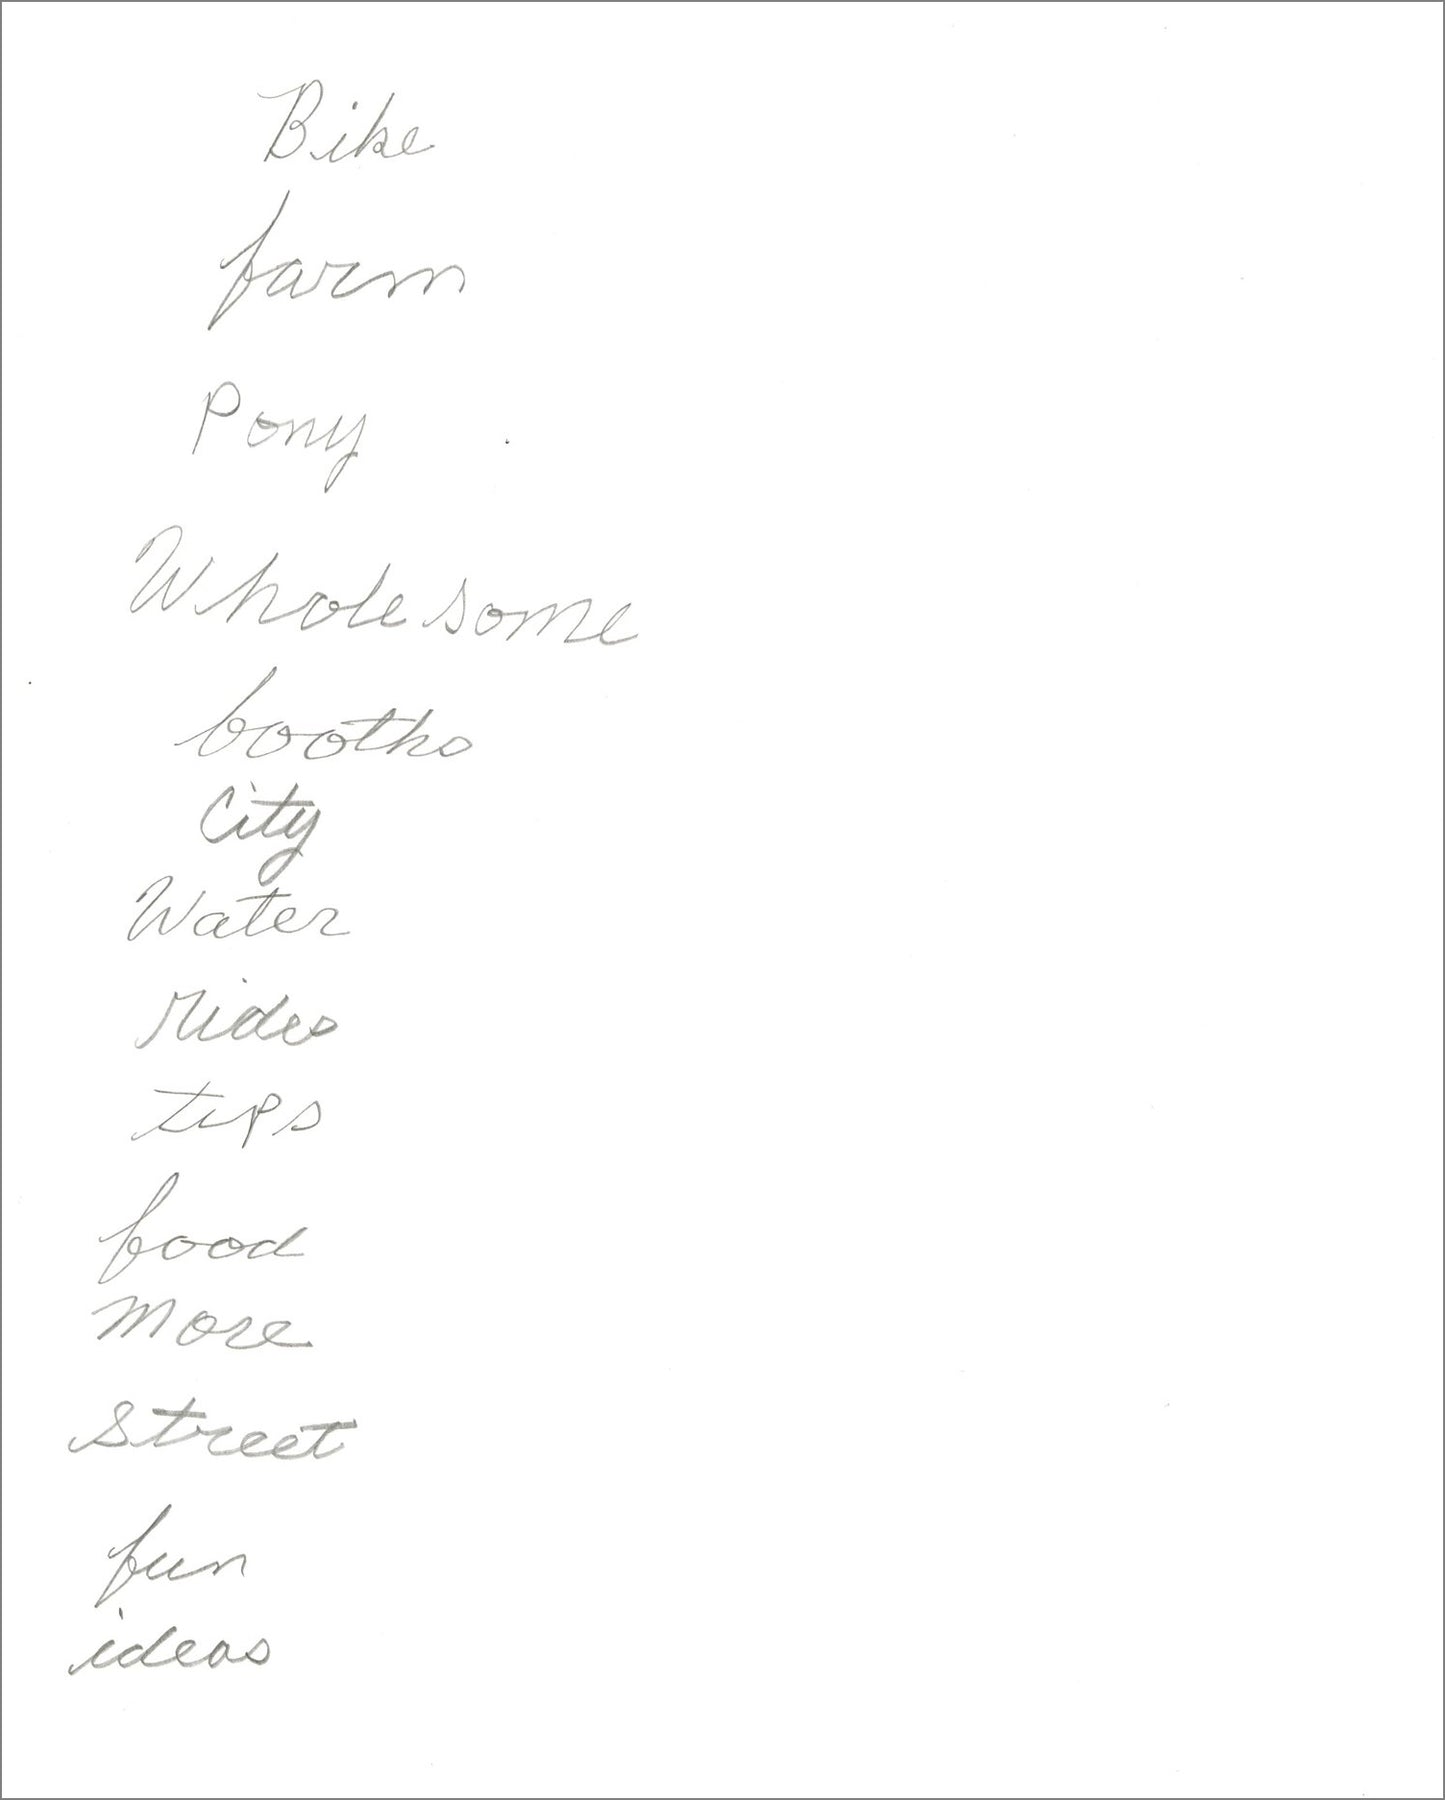 Bike
farm
Pony
Wholesome
booths
City
Water
rides
tips
food
more
street
fun
ideas